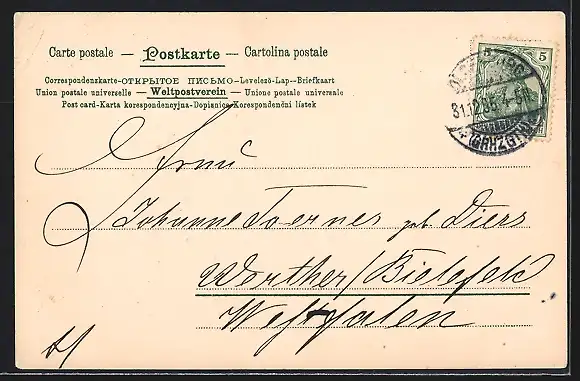 Carte postale — Postkarte — Cartolina postale
Correspondenzkarte-ОТКРЫТОЕ ПИСЬМО-Levelező-Lap--Brefkaart
Union postale universelle — Weltpostverein — Unione postale universale
Post card-Karta korespondencyjna-Dopisnice-Korespondenční lístek
5
31.12.
(GRHZGTM)
Frau
Johanne Toerner geb. Diers
Werther/Bielefeld
Westfalen